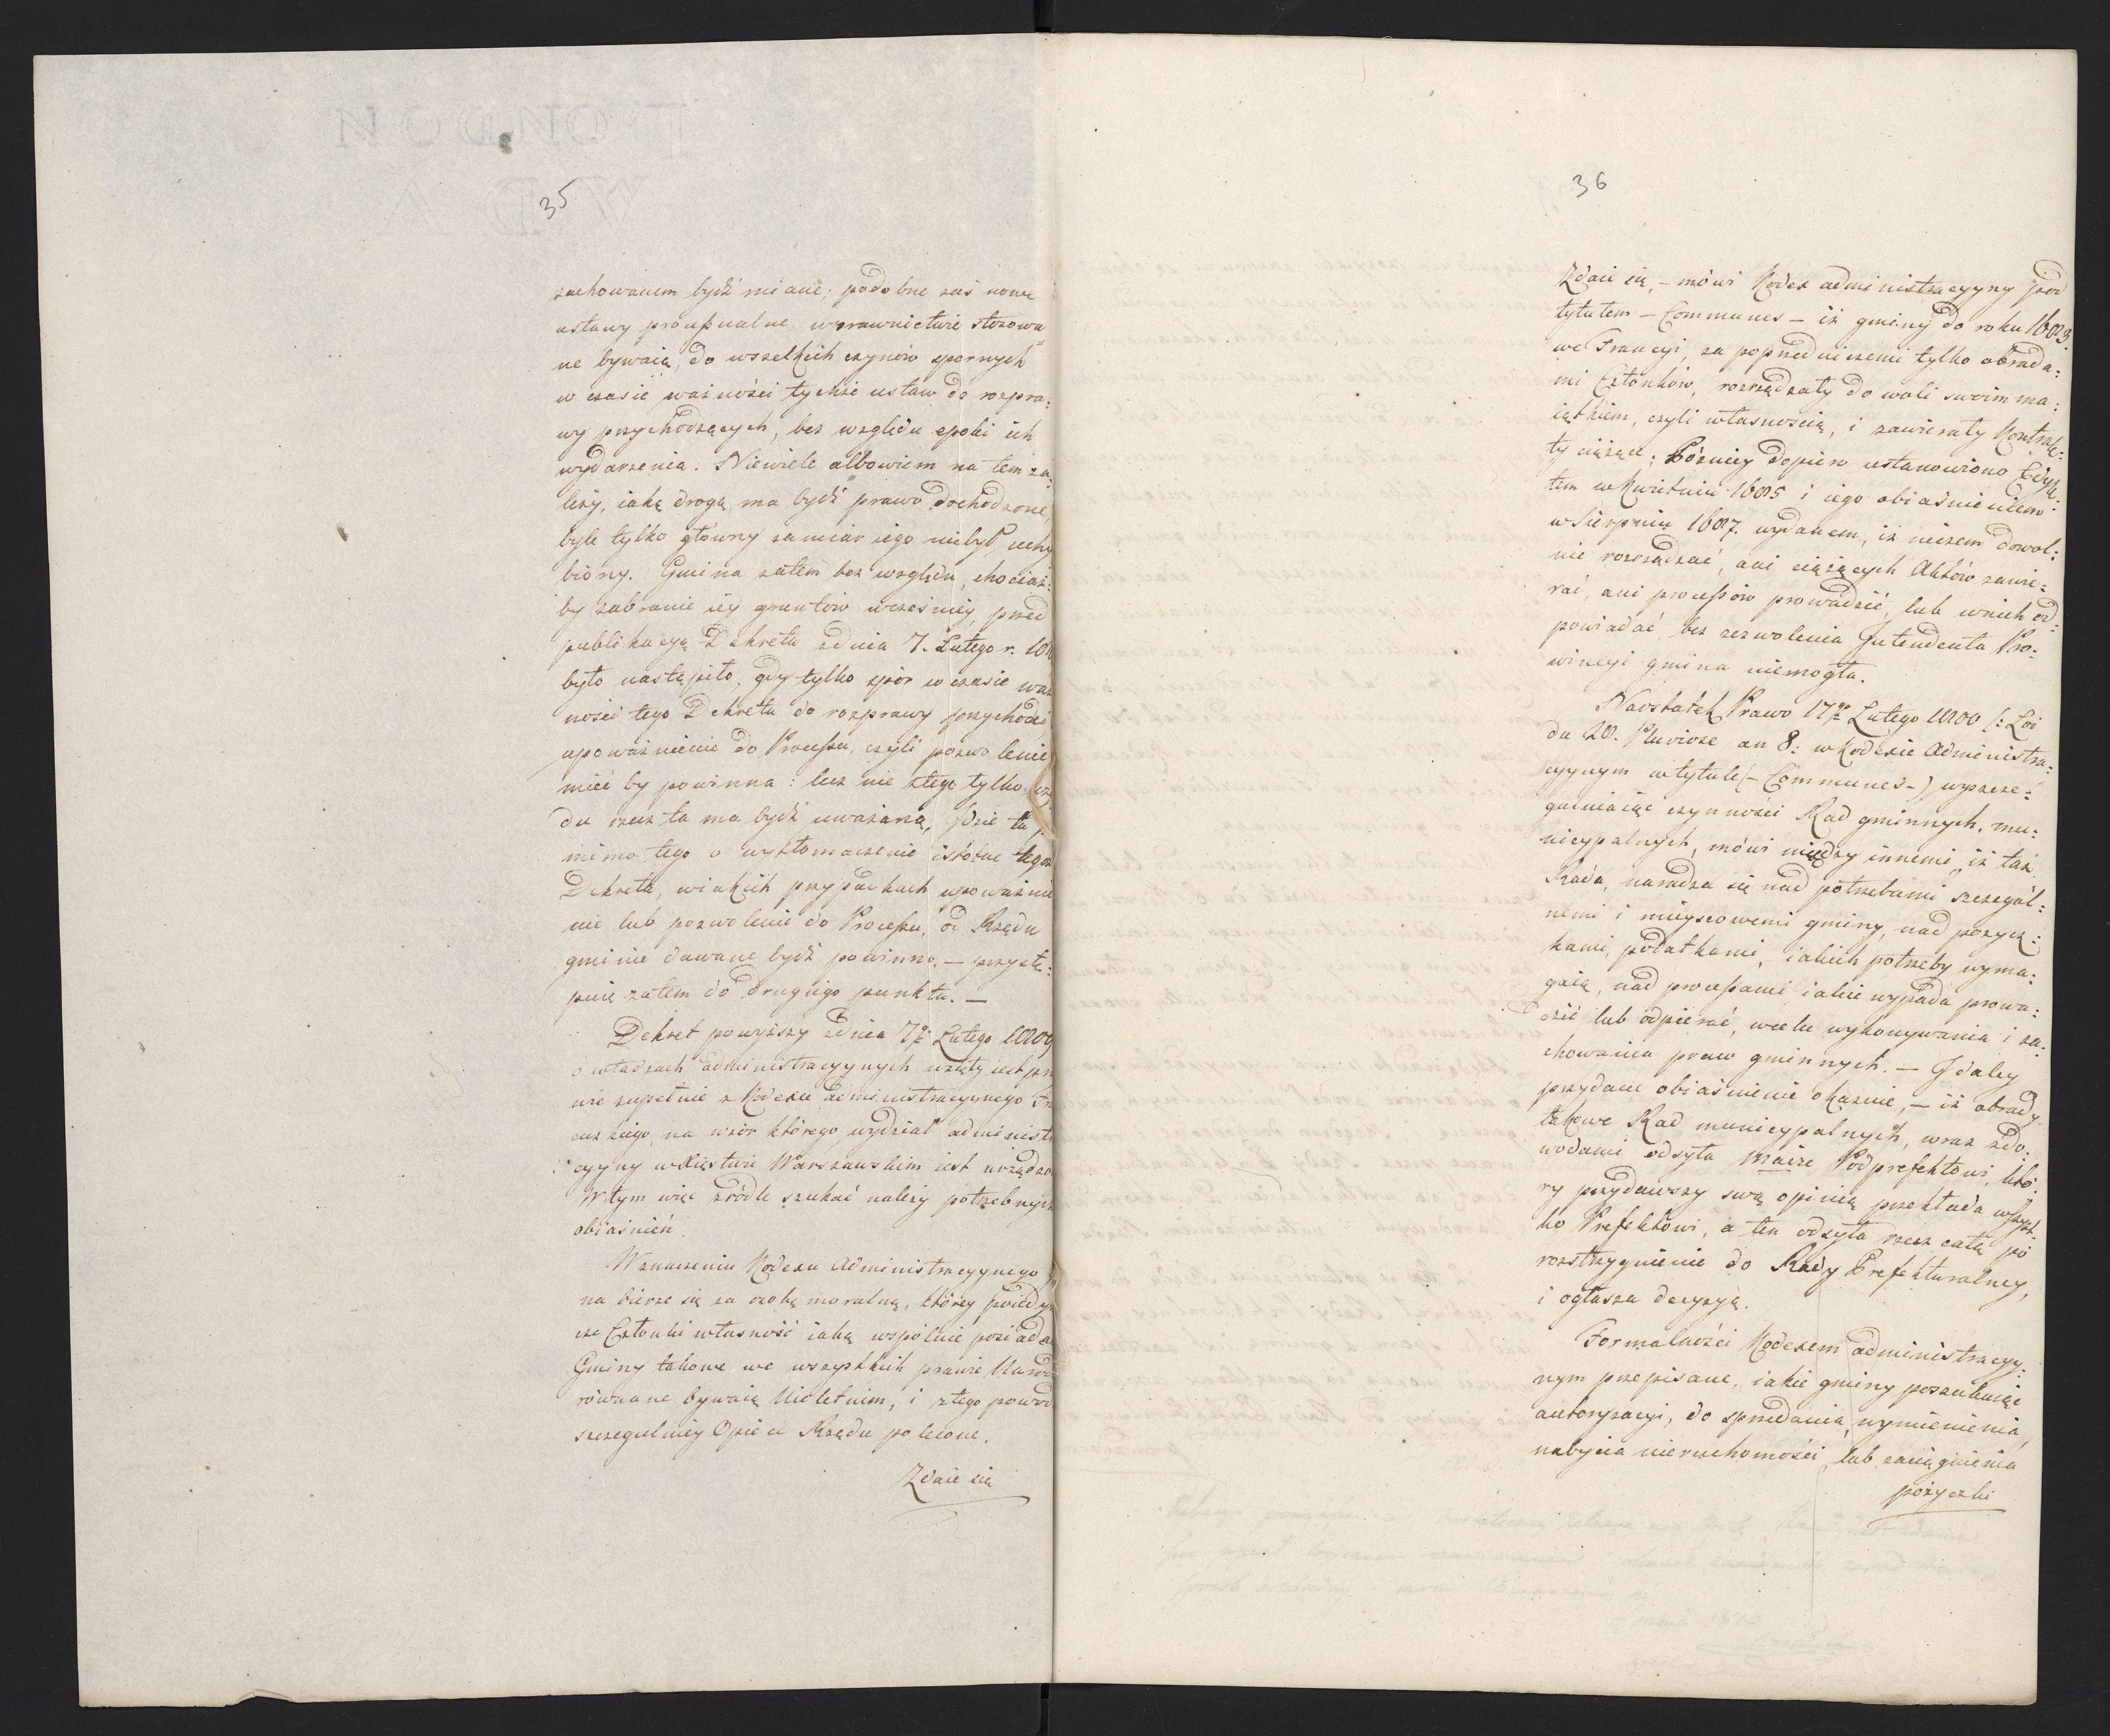 35
zachowanem bydź miane; podobne zaś nowe
ustawy processualne w prawnictwie stosowa
ne bywaią, do wszelkich czynów spornych
w czasie ważności tychże ustaw do rozpra:
wy przychodzących, bez względu epoki ich
wydarzenia: Niewiele albowiem na tem za:
leży, iaką drogą, ma bydź prawo dochodzone,
byle tylko główny zamiar iego niebył uchy
biony. Gmina zatem bez względu, chociaż:
by zabranie iey gruntów wcześniey, przed
publikacyą Dekretu z dnia 7. Lutego r. 180
było nastąpiło, gdy tylko spór w czasie waż
ności tego Dekretu do rozprawy przychodzi
upoważnienie do Processu, czyli pozwolenie
mieć by powinna: lecz nie z tego tylko
du rzecz ta ma bydź uważaną, Idzie tu
mimo tego o wytłomaczenie istotne tegoż
Dekretu, w iakich przypadkach upoważnie
nie lub pozwolenie do Processu, od Rządu
gminie dawane bydź powinno. — przystę:
puię zatem do drugiego punktu. —
Dekret powyższy z dnia 7go Lutego 1809
o władzach administracyynych wzięty iest pra
wie zupełnie z Kodexu administracyynego Fra
cuzkiego, na wzór którego wydział administra
cyyny w Xięstwie Warszawskim iest urządzo
W tym więc źródle szukać należy potrzebnych
obiaśnień.
W znaczeniu Kodexu Administracyynego
na bierze się za osobę moralną, którey poiedyn
cze Członki własność iaką wspólnie posiada
Gminy takowe we wszystkich prawie Narod
równane bywaią Nieletnim, i z tego powod
szczegulniey Opiece Rządu polecone.
Zdaie się
36
Zdaie się, – mówi Kodex administracyyny pod
tytułem – Communes – iż gminy do roku 1683
we Francyi, za poprzedniczemi tylko obrada:
mi Członków, rozrządzały do woli swoim ma:
iątkiem, czyli własnością, i zawierały Kontrak:
ty ciążące; Późniey dopiero ustanowiono Edyk:
tem w Kwietniu 1685 i iego obiaśnieniem
w Sierpniu 1687. wydanem, iż niczem dowol:
nie rozrządzać, ani ciążących Aktów zawie:
rać, ani processów prowadzić, lub w nich od:
powiadać, bez zezwolenia Intendenta Pro:
wincyi gmina niemogła.
Naostatek Prawo 17go Lutego 1800 /: Loi
du 28. Pluviose an 8: w Kodexie Administra:
cyynym w tytule (– Communes –) wyszcze:
gulniaiąc czynności Rad gminnych, mu:
nicypalnych, mówi między innemi, iż taż
Rada, naradza się nad potrzebami szczegól:
nemi i mieyscowemi gminy, nad pożycz:
kami, podatkami, iakich potrzeby wyma:
gaią, nad processami iakie wypada prowa:
dzić lub odpierać, w celu wykonywania i za:
chowania praw gminnych. — I daley
przydane obiaśnienie okazuie, — iż obrady
takowe Rad municypalnych, wraz z do:
wodami odsyła Maire Podprefektowi, któ:
ry przydawszy swą opinią przekłada wszyst:
ko Prefektowi, a ten odsyła rzecz całą po
rozstrzygnienie do Rady Prefekturalney,
i ogłasza decyzyą.
Formalności Kodexem administracyy:
nym przepisane, iakie gminy poszukuiąc
autoryzacyi, do sprzedania, wymienienia,
nabycia nieruchomości, lub zaciągnienia
pożyczki